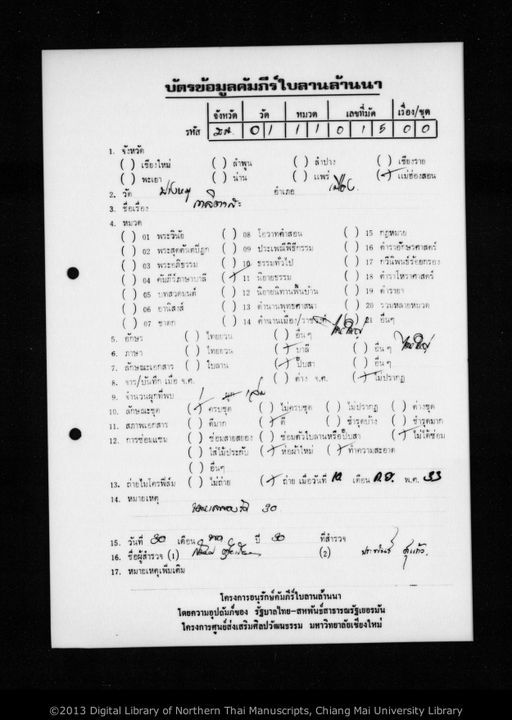 บัตรข้อมูลคัมภีร์ใบลานล้านนา
จังหวัด วัด หมวด เลขที่มัด เรื่อง/ชุด
รหัส มส. 01 11 015 00
1. จังหวัด
( ) เชียงใหม่ ( ) ลำพูน ( ) ลำปาง ( ) เชียงราย
( ) พะเยา ( ) น่าน ( ) แพร่ (/) แม่ฮ่องสอน
2. วัด อำเภอ เมือง
3. ชื่อเรื่อง
4. หมวด
( ) 01 พระวินัย ( ) 08 โอวาทคำสอน ( ) 15 กฎหมาย
( ) 02 พระสุตตันตปิฎก ( ) 09 ประเพณีพิธีกรรม ( ) 16 ตำราอักษรศาสตร์
( ) 03 พระอภิธรรม ( ) 10 ธรรมทั่วไป ( ) 17 กวีนิพนธ์ร้อยกรอง
( ) 04 คัมภีร์ภาษาบาลี (/) 11 นิยายธรรม ( ) 18 ตำราโหราศาสตร์
( ) 05 บทสวดมนต์ ( ) 12 นิยายนิทานพื้นบ้าน ( ) 19 ตำรายา
( ) 06 อานิสงส์ ( ) 13 ตำนานพุทธศาสนา ( ) 20 รวมหลายหมวด
( ) 07 ชาดก ( ) 14 ตำนานเมือง/ราชวงศ์ ( ) 21 อื่นๆ
5. อักษร ( ) ไทยยวน ( ) อื่นๆ ไทใหญ่
6. ภาษา ( ) ไทยยวน (/) บาลี ( ) อื่นๆ ไทใหญ่
7. ลักษณะเอกสาร ( ) ใบลาน (/) ปั๊บสา ( ) อื่นๆ
8. จาร/บันทึก เมื่อ จ.ศ. ( ) ต่าง จ.ศ. (/) ไม่ปรากฏ
9. จำนวนผูกที่พบ 1
10. ลักษณะชุด (/) ครบชุด ( ) ไม่ครบชุด ( ) ไม่ปรากฏ ( ) ต่างชุด
11. สภาพเอกสาร ( ) ดีมาก (/) ดี ( ) ชำรุดบ้าง ( ) ชำรุดมาก
12. การซ่อมแซม ( ) ซ่อมสายสยอง ( ) ซ่อมตัวใบลานหรือปั๊บสา (/) ไม่ได้ซ่อม
( ) ใส่ไม้ประกับ (/) ห่อผ้าใหม่ (/) ทำความสะอาด
( ) อื่นๆ
13. ถ่ายไมโครฟิล์ม ( ) ไม่ถ่าย (/) ถ่าย เมื่อวันที่ เดือน พ.ศ. 33
14. หมายเหตุ
30
15. วันที่ 30 เดือน ปี 30 ที่สำรวจ
16. ชื่อผู้สำรวจ (1) (2)
17. หมายเหตุเพิ่มเติม
โครงการอนุรักษ์คัมภีร์ใบลานล้านนา
โดยความอุปถัมภ์ของ รัฐบาลไทย-สหพันธ์สาธารณรัฐเยอรมัน
โครงการศูนย์ส่งเสริมศิลปวัฒนธรรม มหาวิทยาลัยเชียงใหม่
©2013 Digital Library of Northern Thai Manuscripts, Chiang Mai University Library